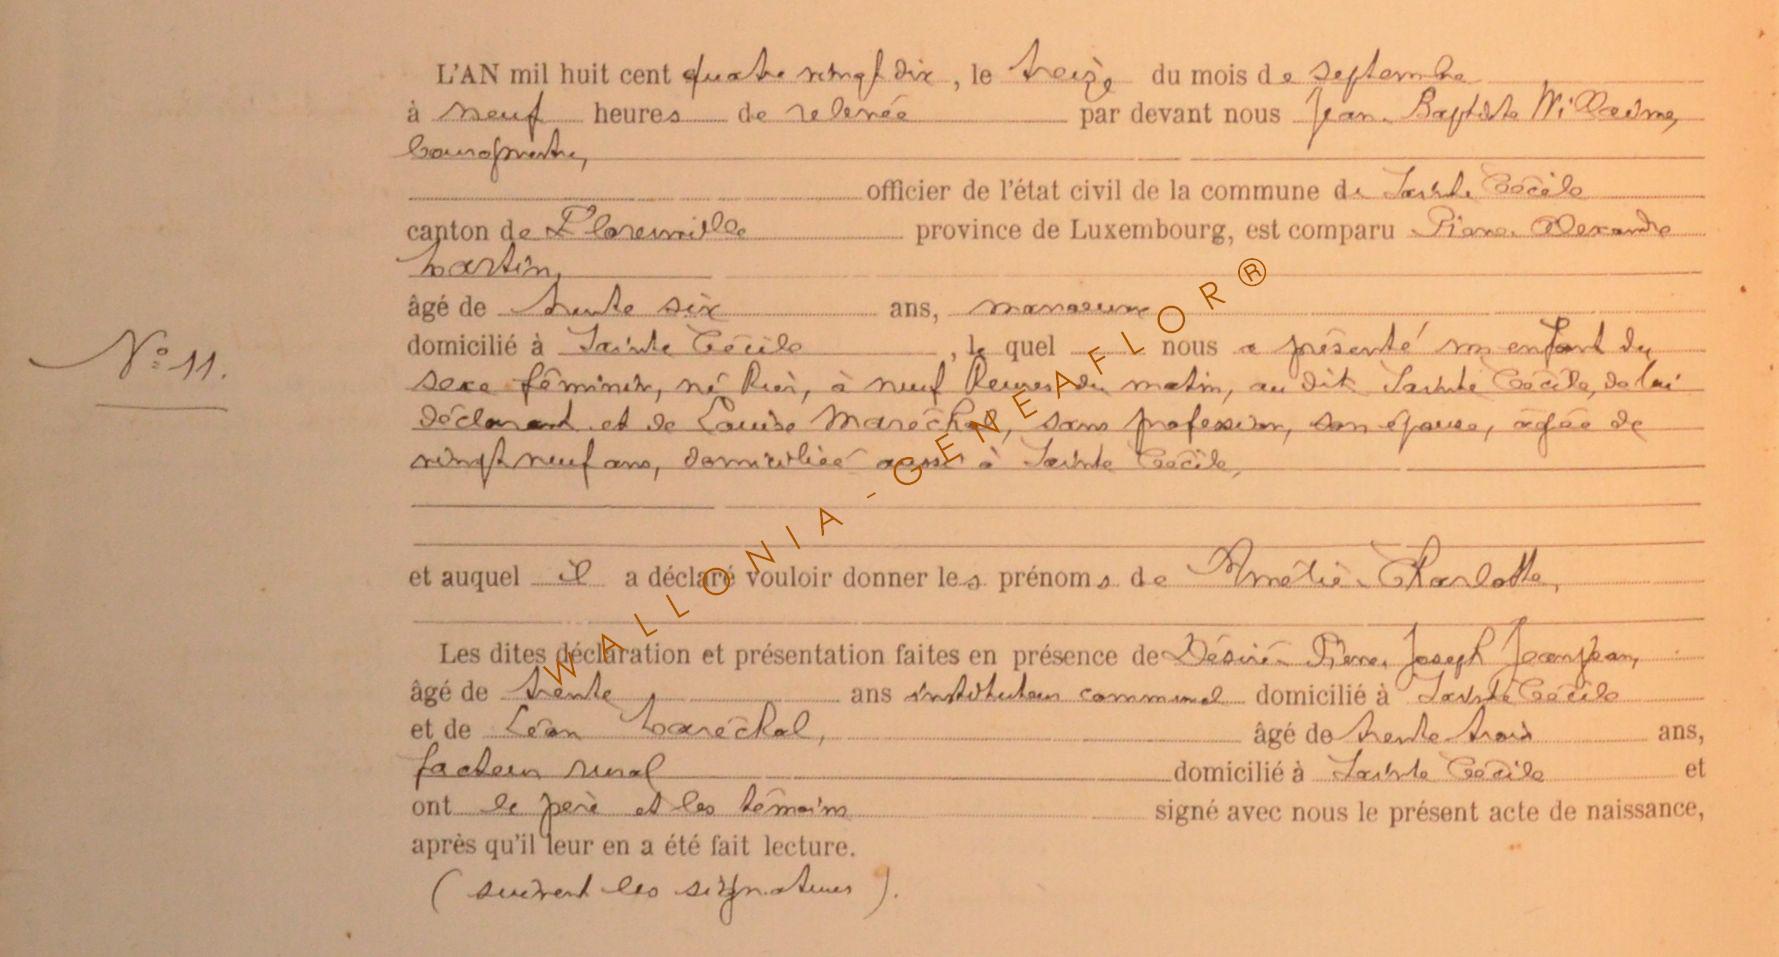 L'AN mil huit cent quatre vingt dix, le treize du mois de septembre
à neuf heures de relevée par devant nous Jean-Baptiste Willaime,
bourgmestre,
officier de l'état civil de la commune de Sainte Cécile
canton de Florenville province de Luxembourg, est comparu Pierre-Alexandre
Martin,
âgé de trente six ans, manoeuvre
domicilié à Sainte Cécile, le quel nous a présenté un enfant du
N° 11.
sexe féminin, né hier, à neuf heures du matin, au dit Sainte Cécile, de lui
déclarant et de Louise Maréchal, sans profession, son épouse, agée de
vingt neuf ans, domiciliée aussi à Sainte Cécile,
et auquel il a déclaré vouloir donner les prénoms de Amélie-Charlotte,
Les dites déclaration et présentation faites en présence de Désiré-Pierre-Joseph Jeanjean,
âgé de trente ans instituteur communal domicilié à Sainte Cécile
et de Léon Maréchal, âgé de trente trois ans,
facteur rural domicilié à Sainte Cécile et
ont le père et les témoins signé avec nous le présent acte de naissance,
après qu'il leur en a été fait lecture.
(suivent les signatures).
WALLONIA-GENEAFLOR®